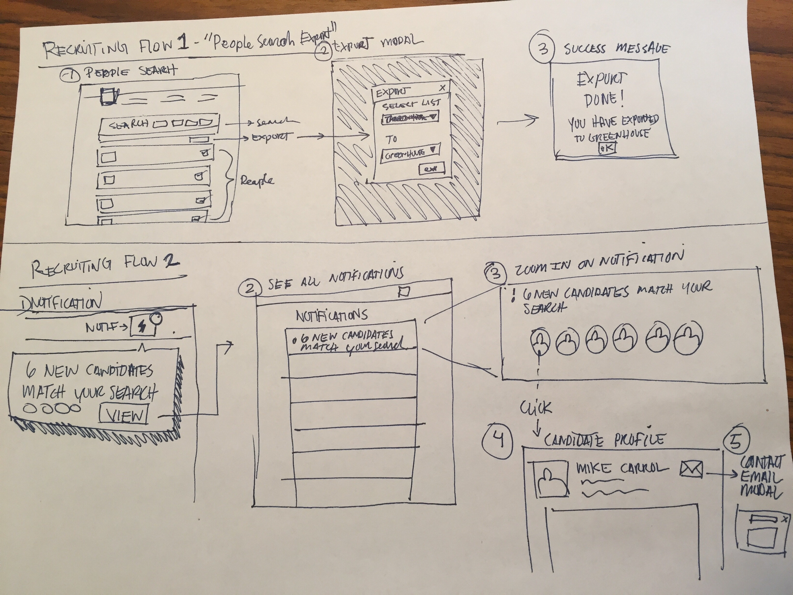 RECRUITING FLOW 1 - "People Search Export"
1 PEOPLE SEARCH
SEARCH
→ Search
→ EXPORT
People
2 EXPORT MODAL
EXPORT X
SELECT LIST
TO
GREENHOUSE
3 SUCCESS MESSAGE
EXPORT
DONE!
YOU HAVE EXPORTED
TO GREENHOUSE
OK
RECRUITING FLOW 2
NOTIFICATION
NOTIF →
6 NEW CANDIDATES
MATCH YOUR SEARCH
VIEW
2 SEE ALL NOTIFICATIONS
NOTIFICATIONS
6 NEW CANDIDATES
MATCH your search
3 ZOOM IN ON NOTIFICATION
! 6 NEW CANDIDATES MATCH YOUR
SEARCH
CLICK
4 CANDIDATE PROFILE
MIKE CARROL
5
CONTACT
EMAIL
MODAL
X